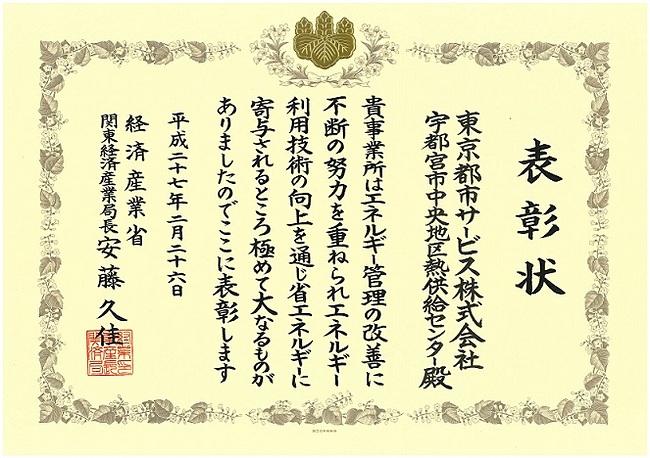 表彰状
東京都市サービス株式会社
宇都宮市中央地区熱供給センター殿
貴事業所はエネルギー管理の改善に
不断の努力を重ねられエネルギー
利用技術の向上を通じ省エネルギーに
寄与されるところ極めて大なるものが
ありましたのでここに表彰します
平成二十七年二月二十六日
経済産業省
関東経済産業局長 安藤久佳